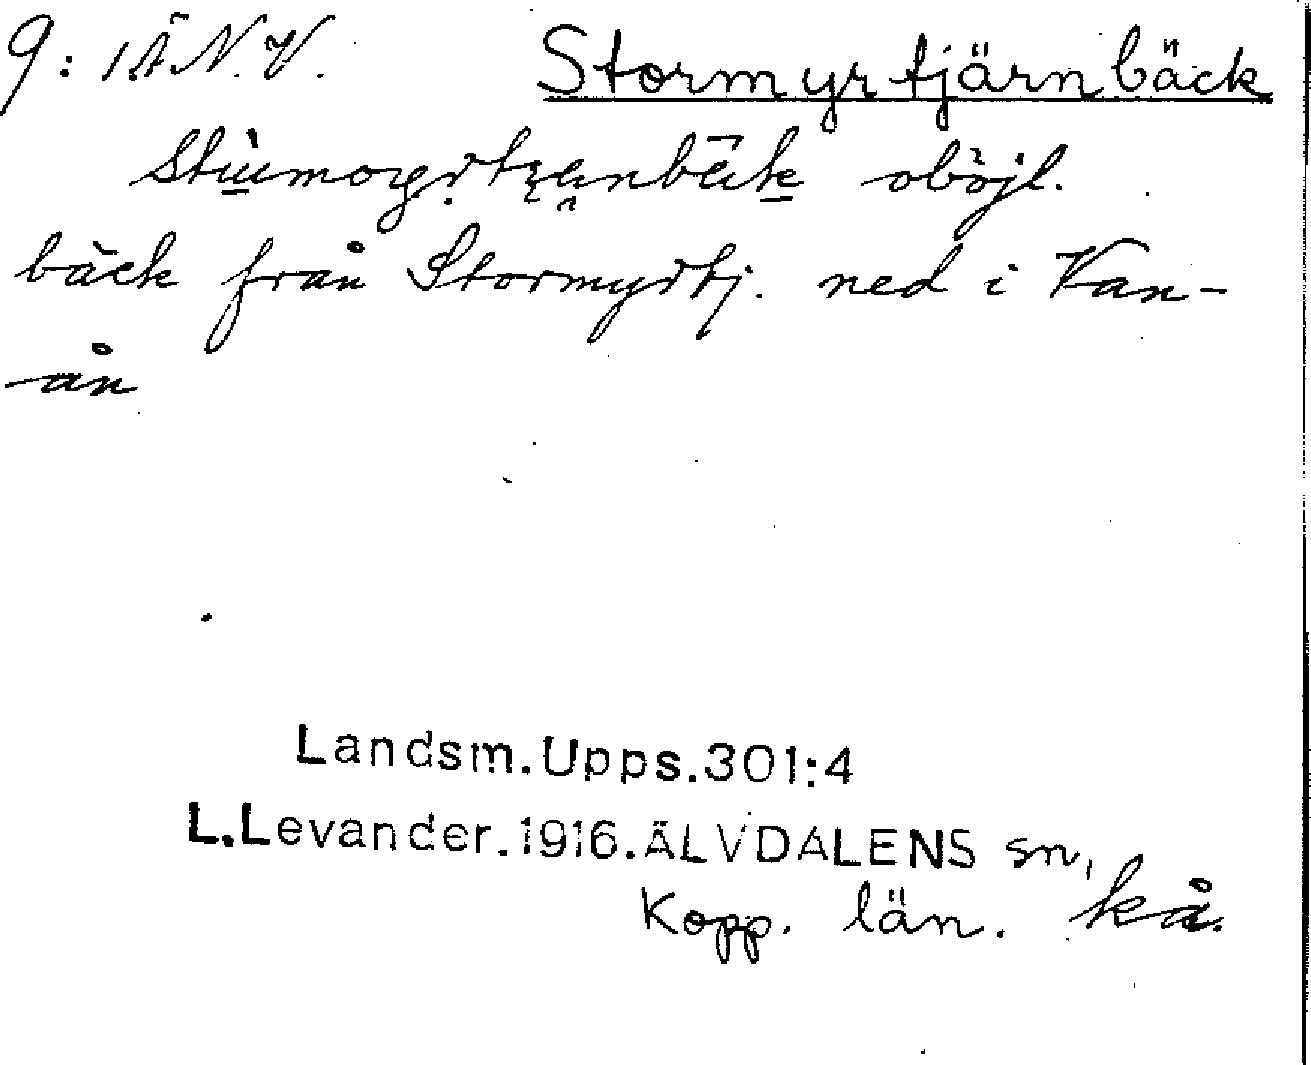 9: 1 Ä N.V. Stormyrtjärnbäck
oböjl.
bäck från Stormyrtj. ned i Van-
ån
Landsm.Upps.301:4
L.Levander.1916.ÄLVDALENS sn,
Kopp. län. kå.